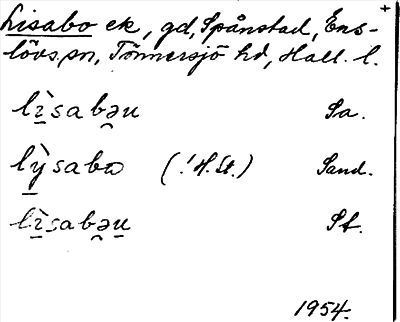 +
Lisabo ek, gd, Spånstad, Ens-
lövs sn, Tönnersjö hd, Hall. l.
lìsabəu Sa.
lỳsabω (! H. St.) Sand.
lìsabəu St.
1954.